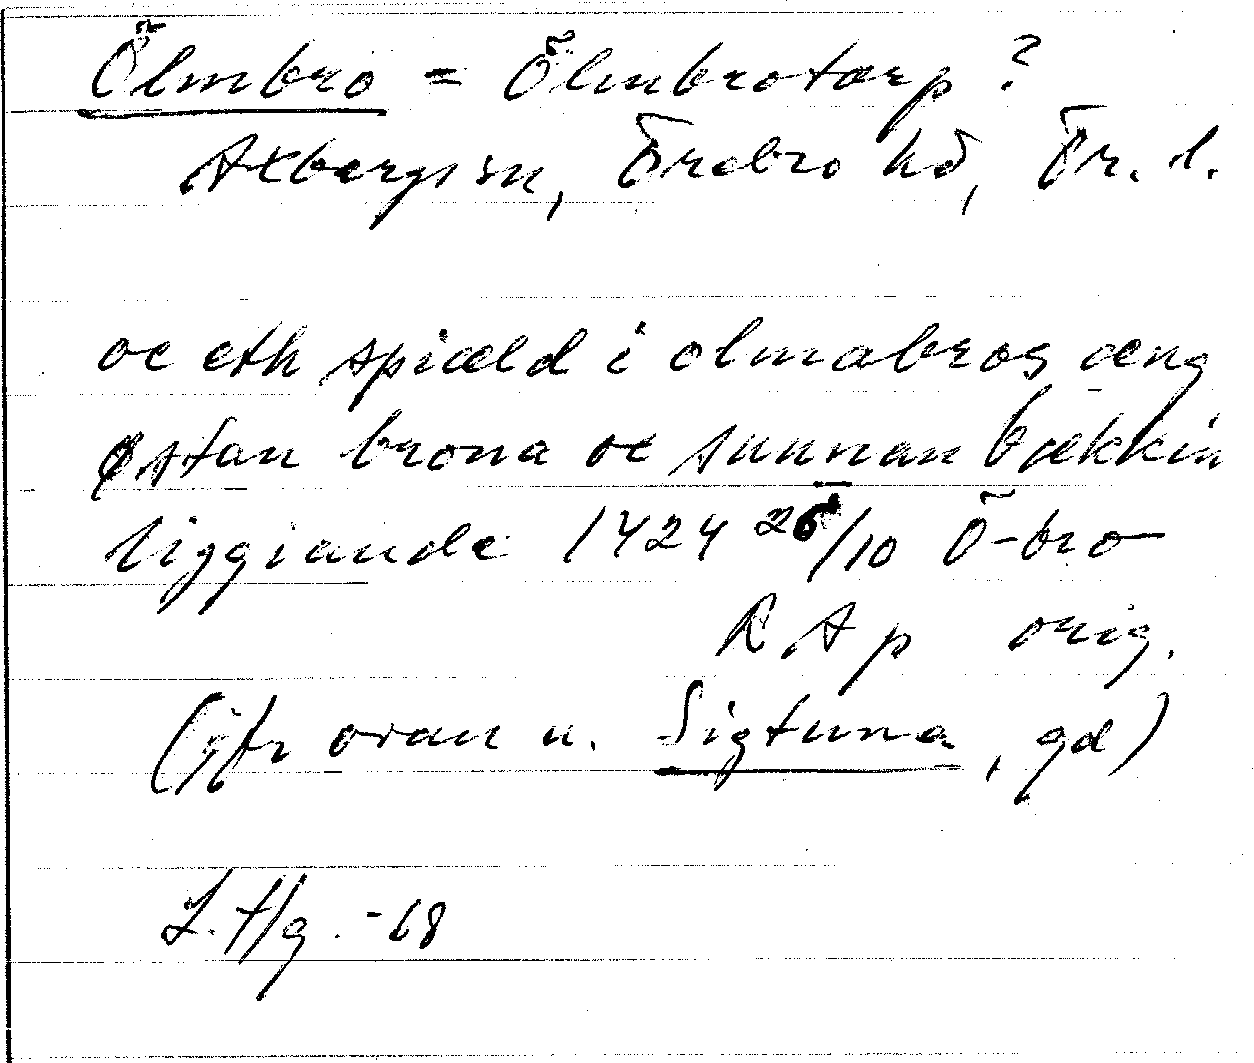 Ölmbro = Ölmbrotorp?
Axbergs sn, Örebro hd, Ör. l.
oc eth spiæld i olmabros æng
østan brona oc sunnan bækkin
liggiande 1424 26/10 Ö-bro
RAp orig.
(jfr ovan u. Sigtuna, gd)
L. Hg. -68